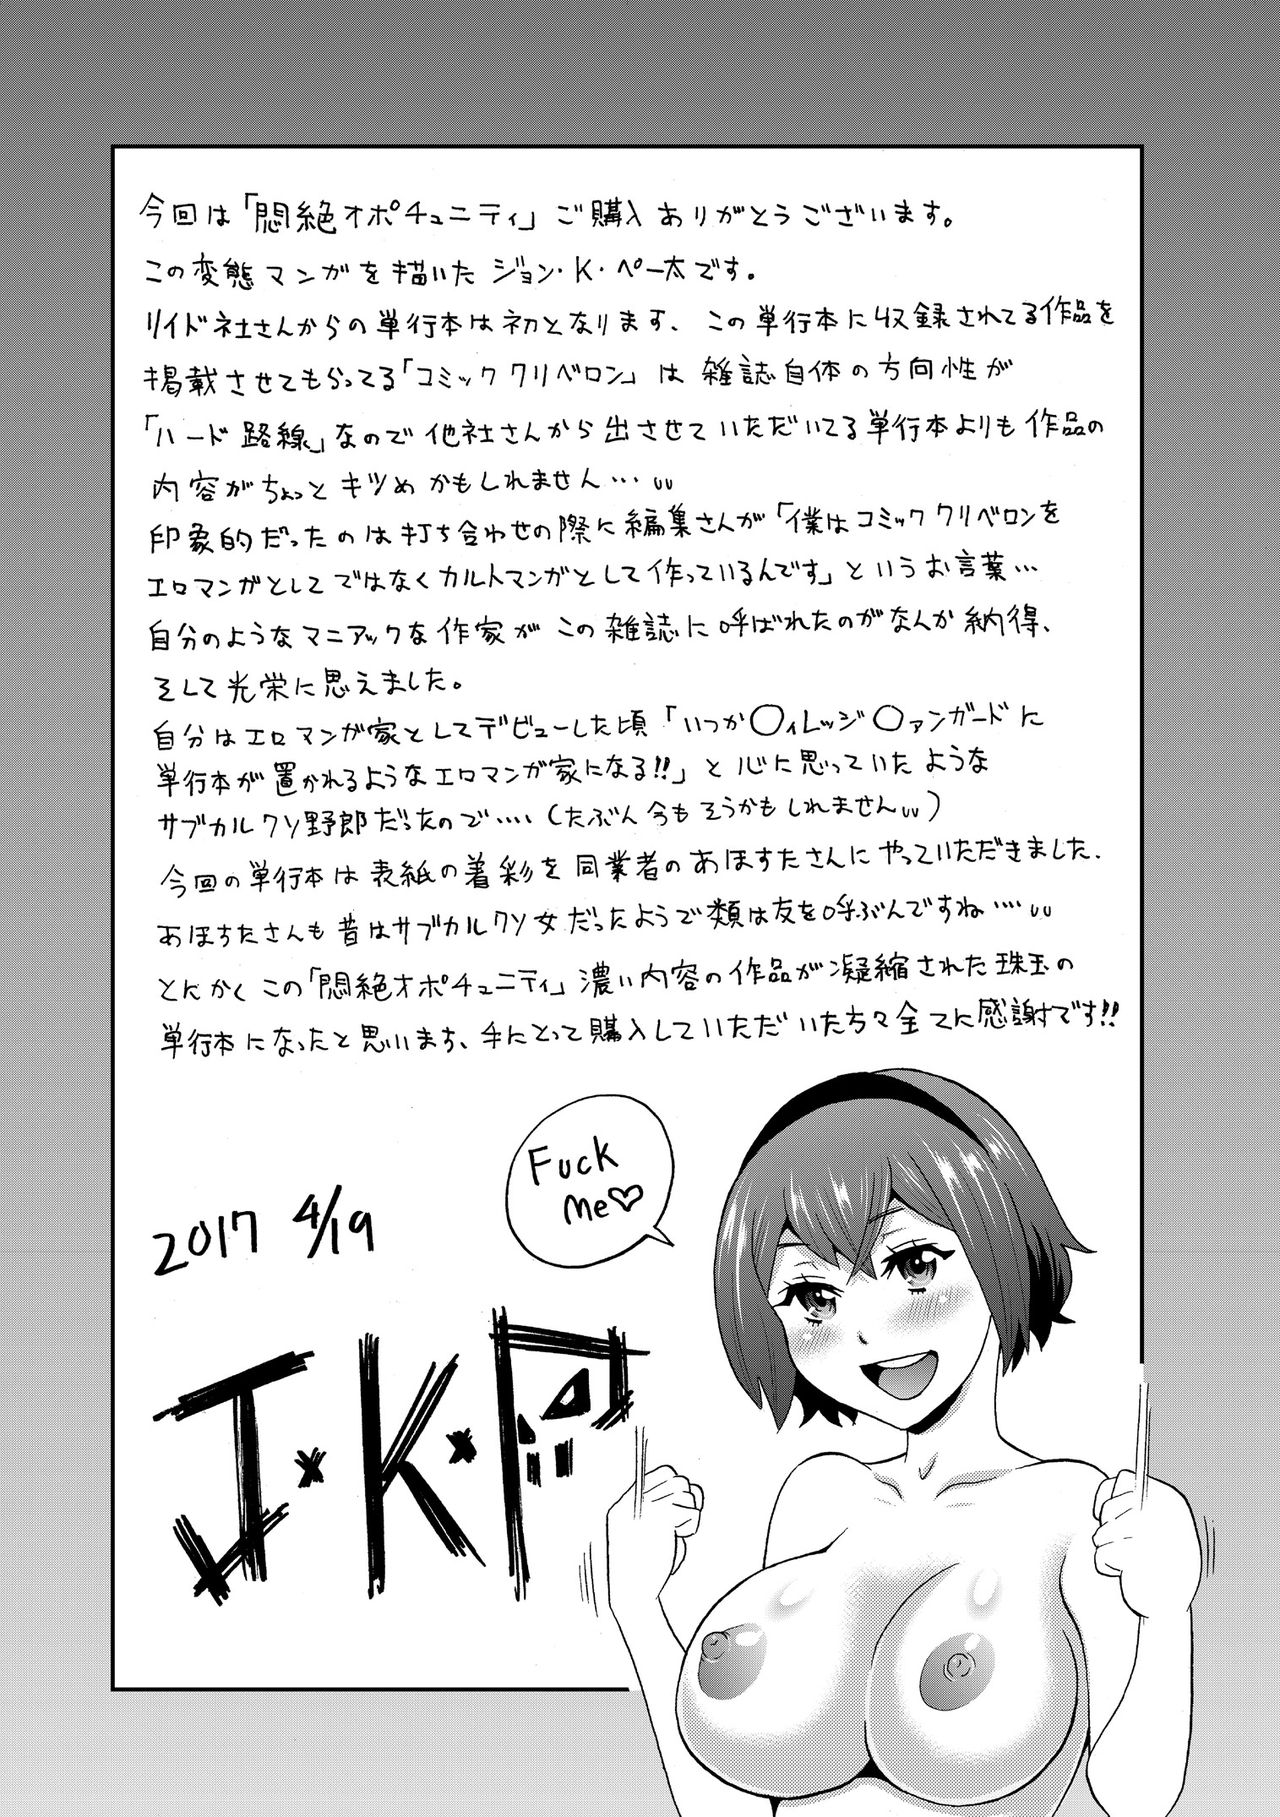 今回は「悶絶オポチュニティ」ご購入ありがとうございます。
この変態マンガを描いたジョン・K・ペー太です。
リイド社さんからの単行本は初となります、この単行本に収録されてる作品を
掲載させてもらってる「コミッククリベロン」は雑誌自体の方向性が
「ハード路線」なので他社さんから出させていただいてる単行本よりも作品の
内容がちょっとキツめかもしれません…
印象的だったのは打ち合わせの際に編集さんが「僕はコミッククリベロンを
エロマンガとしてではなくカルトマンガとして作っているんです」というお言葉…
自分のようなマニアックな作家がこの雑誌に呼ばれたのがなんか納得、
そして光栄に思えました。
自分はエロマンガ家としてデビューした頃「いつか〇ィレッジ〇ァンガードに
単行本が置かれるようなエロマンガ家になる!!」と心に思っていたような
サブカルクソ野郎だったので‥‥(たぶん今もそうかもしれません)
今回の単行本は表紙の着彩を同業者のあほすたさんにやっていただきました、
あほすたさんも昔はサブカルクソ女だったようで類は友を呼ぶんですね‥‥
とんかくこの「悶絶オポチュニティ」濃い内容の作品が凝縮された珠玉の
単行本になったと思います、手にとって購入していただいた方々全てに感謝です!!
Fuck
Me♡
2017 4/19
J・K・P